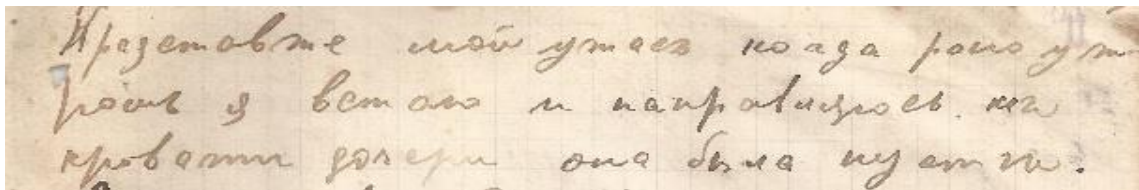 Представте мой ужас когда рано ут
ром я встаю и направляюсь к
кровати дочери она была пуста.